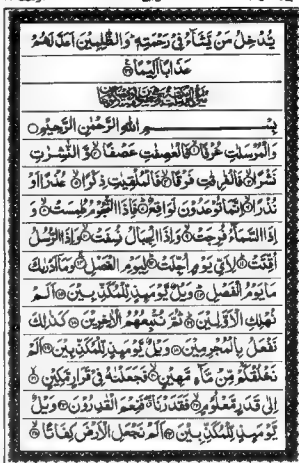 يُّدْخِلُ مَنْ يَّشَآءُ فِيْ رَحْمَتِهٖ ؕ وَالظّٰلِمِيْنَ اَعَدَّ لَهُمْ
عَذَابًا اَلِيْمًا
بِسْمِ اللّٰهِ الرَّحْمٰنِ الرَّحِيْمِ
وَالْمُرْسَلٰتِ عُرْفًا ۙ فَالْعٰصِفٰتِ عَصْفًا ۙ وَّالنّٰشِرٰتِ
نَشْرًا ۙ فَالْفٰرِقٰتِ فَرْقًا ۙ فَالْمُلْقِيٰتِ ذِكْرًا ۙ عُذْرًا اَوْ
نُذْرًا ۙ اِنَّمَا تُوْعَدُوْنَ لَوَاقِعٌ ؕ فَاِذَا النُّجُوْمُ طُمِسَتْ ۙ وَ
اِذَا السَّمَآءُ فُرِجَتْ ۙ وَاِذَا الْجِبَالُ نُسِفَتْ ۙ وَاِذَا الرُّسُلُ
اُقِّتَتْ ؕ لِاَيِّ يَوْمٍ اُجِّلَتْ ؕ لِيَوْمِ الْفَصْلِ ۚ وَمَآ اَدْرٰىكَ
مَا يَوْمُ الْفَصْلِ ؕ وَيْلٌ يَّوْمَئِذٍ لِّلْمُكَذِّبِيْنَ ۙ اَلَمْ
نُهْلِكِ الْاَوَّلِيْنَ ؕ ثُمَّ نُتْبِعُهُمُ الْاٰخِرِيْنَ ۙ كَذٰلِكَ
نَفْعَلُ بِالْمُجْرِمِيْنَ ۙ وَيْلٌ يَّوْمَئِذٍ لِّلْمُكَذِّبِيْنَ ۙ اَلَمْ
نَخْلُقْكُّمْ مِّنْ مَّآءٍ مَّهِيْنٍ ۙ فَجَعَلْنٰهُ فِيْ قَرَارٍ مَّكِيْنٍ ۙ
اِلٰى قَدَرٍ مَّعْلُوْمٍ ۙ فَقَدَرْنَا ۖ فَنِعْمَ الْقٰدِرُوْنَ ۙ وَيْلٌ
يَّوْمَئِذٍ لِّلْمُكَذِّبِيْنَ ۙ اَلَمْ نَجْعَلِ الْاَرْضَ كِفَاتًا